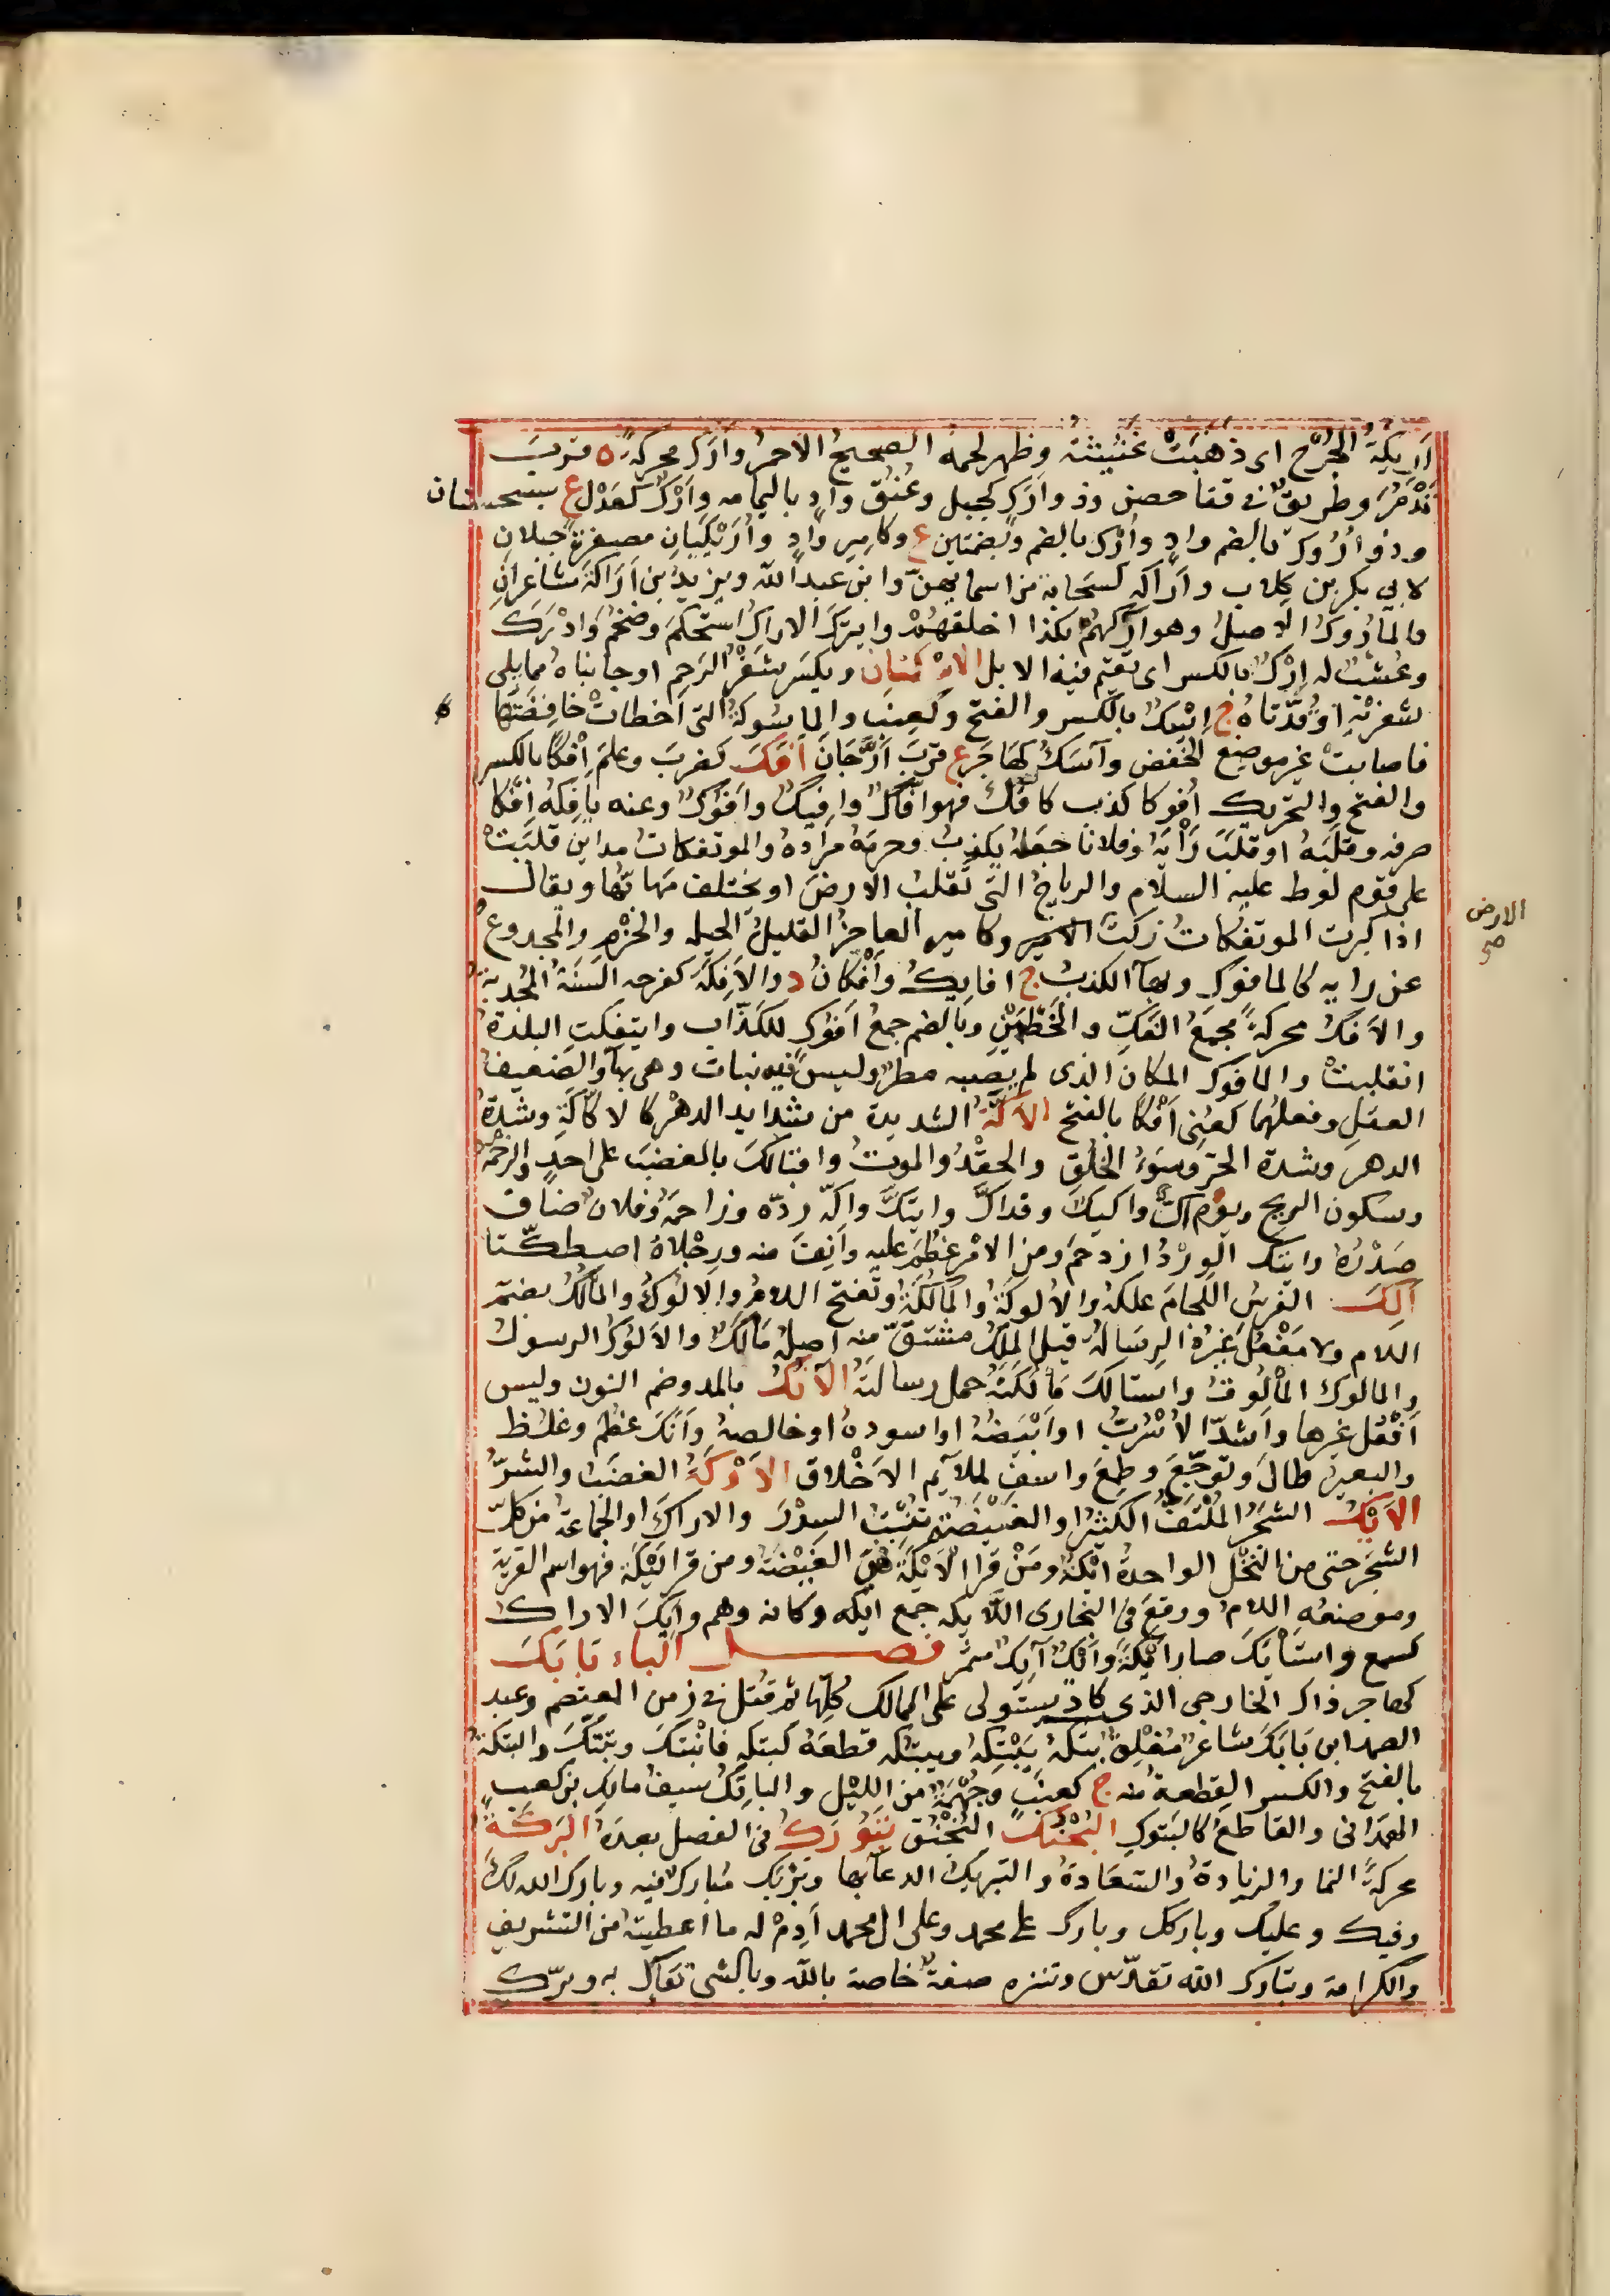 اَرِيكَةُ الجُرْحِ اى ذهبَتْ غَثِيثَتُه وظهر لحمه الصحيحُ الاحمرُ وأَرَك محركةً ه قربَ
تَدْمُرَ وطريقٌ فى قفا حصن وذو أرَك كجبل وعُنُق وادٍ باليمامه وأَرْكٌ كعَدْل ع بسجستان
وذو أُرُوك بالضم وادٍ وأُرْك بالضم وبضمتين ع وكامير وادٍ وأُرَيْكَتانِ مصغرةً جبلانِ
لابى بكر بن كِلاب وأَرَاكه كسَحابة من اسمايهنّ وابن عبد الله ويزيدُ بن اَرَاكةَ شاعرانِ
والمأرُوكُ الاصلُ وهو آرَكُهُمْ بكذا اخلقهُمْ وايترَكَ الاراكُ استحكمَ وضَخُم وَادْرَكَ
وعُشْبٌ له اِرْكٌ بالكسر اى تقيم فيه الابل الاسْكَتانِ ويكسَر شفْرُ الرَحِم اوجانباهُ مما يلى
شعرَيْهِ اوقُدَّتاهُ ج اِسْكٌ بالكسر والفتح وكعِنَب والماسُوكةُ التى اَخطاتْ خافِضَتُها
فاصابتْ غير موضِع الخفض وآسَكُ كهاجَر ع قربَ اَرَّجَانَ اَفَكَ كضربَ وعلمَ اِفْكًا بالكسر
والفتح والتحريك اُفوكا كذب كاَفَّكَ فهو افّاكٌ وافيكٌ وافُوكٌ وعنه يافِكُه اَفْكًا
صرفه وقلَبَه اوقلَبَ رَاْيَهُ وفلانا جَعَلهُ يكذِبُ وحرمَهُ مرادهُ والموتفكاتُ مداينُ قلبَتْ
على قوم لوط عليه السلام والرياحُ التى تقلبُ الارضَ اوتختلف مَهابُّها ويقال
اذا كثرت الموتفكاتُ زكَتْ الارض وكامير العاجزُ القليلُ الحيله والحَزْمِ والمخدوع
عن رايه كالمافوك وبهآ الكذبُ ج افايكُ وأفكانُ د والأَفِكَةُ كفرحه السَنَةُ المُجدبة
والاَفَكُ محركةً مجمعُ الفَكِّ والخَطْمَيْنِ وبالضم جمعُ اَفُوكٍ للكذّاب وايتفكتِ البلدةُ
انقلبتْ والمافوك المكان الذى لم يصبه مطرٌ وليس فيه نبات وهى بهآ والضعيف
العقلِ وفعلهُما كعُنِى اَفْكًا بالفتح الاَكَّةُ الشديدة من شدايد الدهر كالاكّاكَةِ وشدةُ
الدهر وشدة الحرّ وسُوءُ الخُلُقِ والحِقْدُ والموتُ واقبالكَ بالغضبَ على احدٍ والزحْمَةُ
وسكون الريح ويومٌ اَكٌّ واكيكٌ وقد اَكَّ وايتكَّ واكّه ردّه وزاحمَهُ وفلان ضاق
صَدْرُهُ وايتكَّ الوِرْدُ ازدحَمَ ومن الامْر عَظُمَ عليهِ وأنِفَ منه ورِجْلاهُ اصطكّتا
اَلَكَ الفرسُ اللّجامَ علكَه والاَلوكَةُ والمَالُكَةُ وتفتح اللامُ والاَلُوكُ والمَالُكُ بضمّ
اللام ولا مَفْعُلَ غيرُهُ الرِسالةُ قيل المَلَكُ مشتقٌّ منه اصلُهُ مَالَكٌ والاَلُوكُ الرسولُ
والمالوك المأْلُوقُ واستالَكَ مَالُكَتَهُ حمل رسالتَهُ الآنُكُ بالمد وضم النون وليس
اَفْعُل غيرها واَشُدّ الاُسْرُبُّ اواَبْيَضُهُ اواسودهُ اوخالصهُ وَاَنَكَ عظُمَ وغلظ
والبعيرُ طالَ وتوجّعَ وطمِعَ واسفَ لملآيم الاَخْلاق الاَوْكَةُ الغضَبُ والشرُّ
الاَيْكُ الشجَرُ المُلْتَفُّ الكثيرُ اوالغَيْضَةُ تنْبِتُ السِدْرَ والاراكَ اوالجَماعةُ من كلّ
الشجَر حتى من النخْل الواحدةُ ايْكةٌ ومَنْ قرا الاَيْكَةَ فهىَ الغَيْضةُ ومن قرا لَيْكَةَ فهو اسم القرية
وموضعُه اللامُ ووقعَ فى البخارى اللّايكه جمع ايكه وكانه وهم واَيِكَ الاراك
كسمع واستَأيَكَ صار اَيْكةً واَيْكٌ آيِكٌ مثمر فصل الباء بَابَكَ
كهاجر ذاك الخارجى الذى كاد يستولى على الممالك كلّها ثم قُتل فى زمن المعتصم وعبد
الصمد ابن بَابَكَ شاعرٌ مُفْلِق بتَكهُ يَبْتِكُهُ ويبتُكه قطعَهُ كبتّكه فانْبَتَكَ وتبتّكَ والبتكة
بالفتح والكسر القِطعةُ منه ج كعِنَبٍ وجُهْمَةٌ من اللّيْل والباتِكُ سيفُ مالِكِ بن كعبٍ
الهَمْدانى والقاطعُ كالبَتوكِ البُخْنُكُ البُخْنُق بَنُّوْ رَكُ فى الفصل بعدَهُ البَرَكَةُ
محركةً النما والزيادةُ والسَعادةُ والتبريكُ الدعآ بها وبَرْيَك مُبارك فيه وبارك الله لكَ
وفيك وعليك وباركك وبارك على محمد وعلى ال محمد اَدِمْ له ما اعطيته من التشريف
والكرامة وتبارك الله تقدّس وتنزه صفةٌ خاصة بالله وبالشى تفآل به وبرّك
الارض
صح